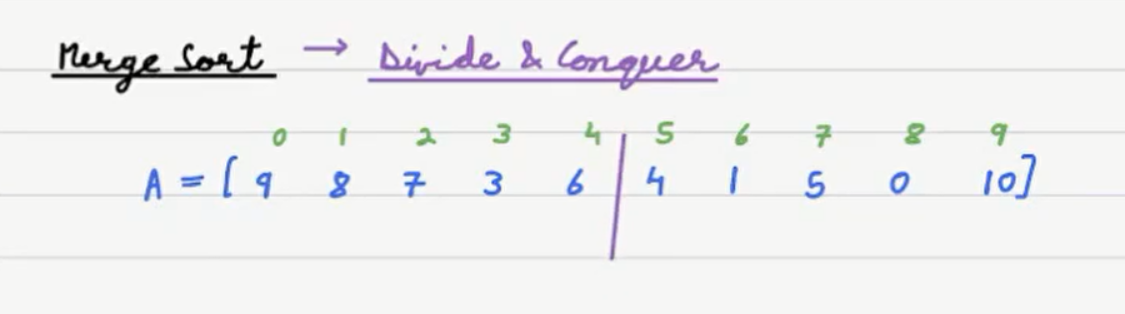 Merge Sort → Divide & Conquer
0 1 2 3 4 5 6 7 8 9
A = [ 9 8 7 3 6 | 4 1 5 0 10 ]